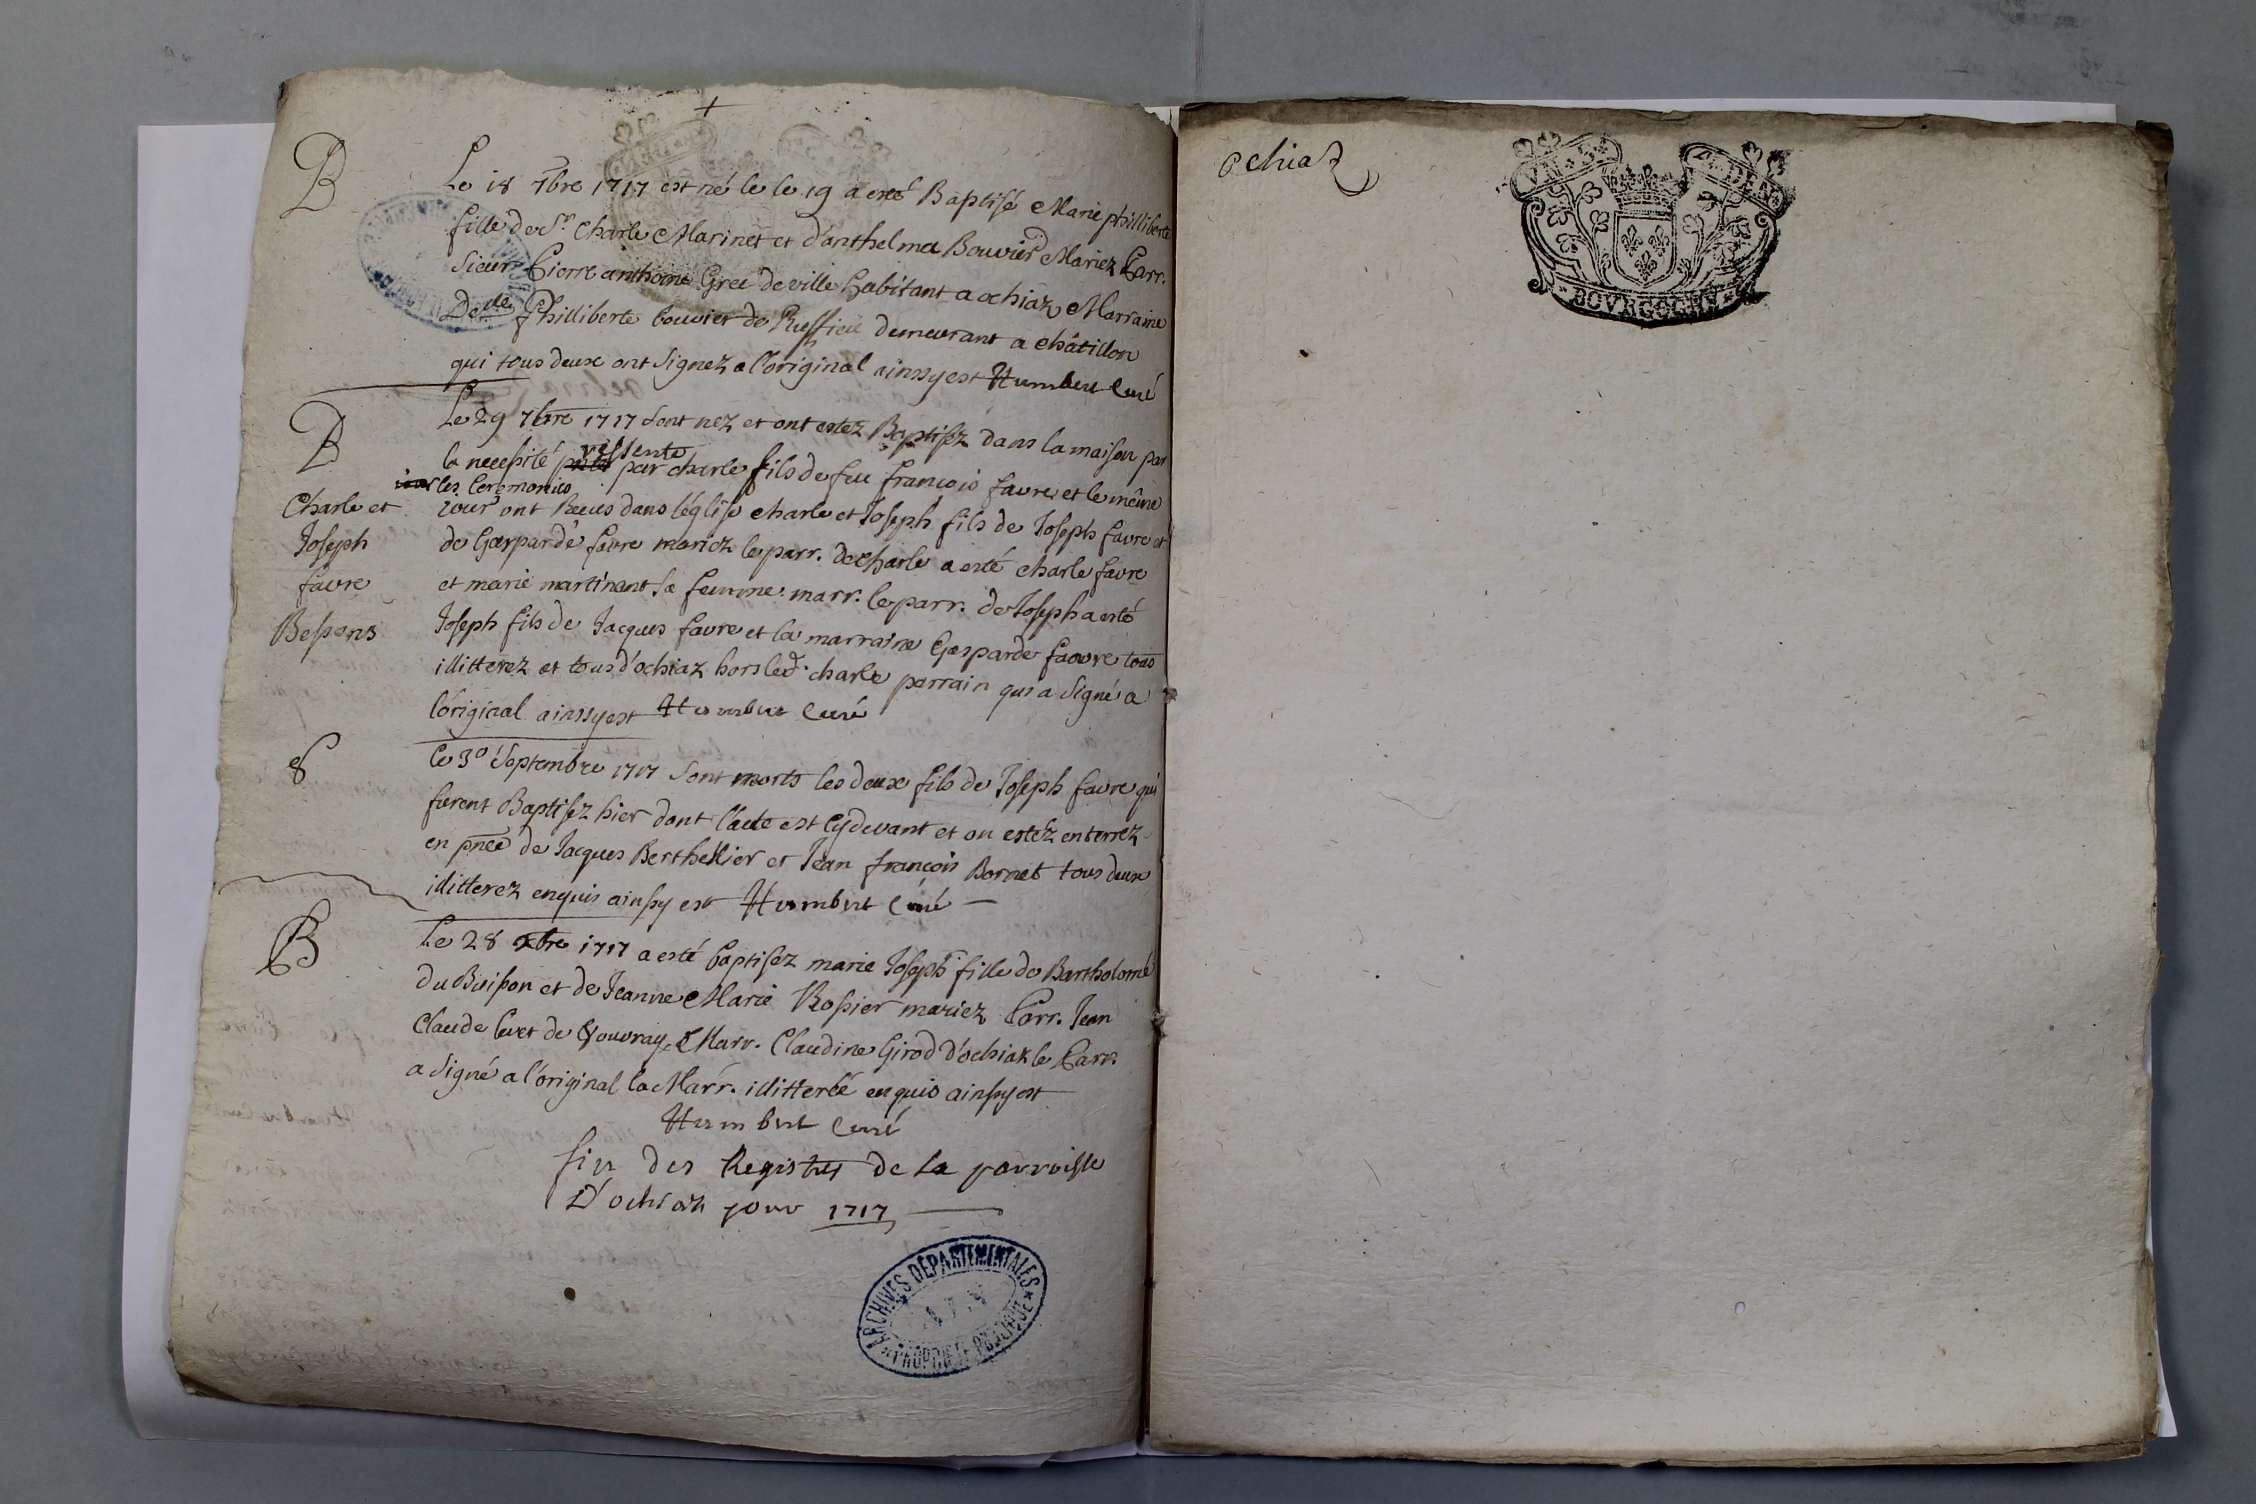 +
B
Le 18 7bre 1717 est né le le 19 a esté Baptisé Marie philliberte
fille de Sr. Charle Marinet et d'anthelma Bouvier Mariez Parr.
Sieur Pierre anthoine de ville habitant a ochiaz Marraine
Delle Philliberte bouvier de Ruffieu demeurant a châtillon
qui tous deux ont signez a l'original ainssy est Humbert Curé
B
Charle et
Joseph
favre
Bessons
Le 29 7bre 1717 sont nez et ont estez Baptisez dans la maison par
la necessité pressente par charle fils de feu françois favre et le même
les Ceremonies
jour ont Receus dans l'église charle et Joseph fils de Joseph favre et
de Gasparde favre mariez le parr. de charle a esté charle favre
et marie martinant sa femme marr. le parr. de Joseph a esté
Joseph fils de Jacques favre et la marraine Gasparde favre tous
illitterez et tous d'ochiaz hors led. charle parrain qui a signé a
l'original ainssy est Humbert Curé
Le 30 Septembre 1717 sont morts les deux fils de Joseph favre qui
furent Baptisez hier dont l'acte est Cydevant et on estéz enterrez
en pnce de Jacques Berthellier et Jean françois Bornet tous deux
illitterez enquis ainsy est Humbert Curé
B
Le 28 xbre 1717 a esté baptisez marie Joseph fille de Bartholomé
du Buisson et de Jeanne Marie Rossier mariez Parr. Jean
Claude de Vouvray, Marr. Claudine Girod d'ochiaz le Parr.
a signé a l'original la Marr. illitterée enquis ainsy est
Humbert Curé
fin des Registres de la parroisse
D'ochiaz pour 1717
ARCHIVES DÉPARTEMENTALES
AIN
PROPRIÉTÉ PUBLIQUE
ochiaz
BOVRGOGNE